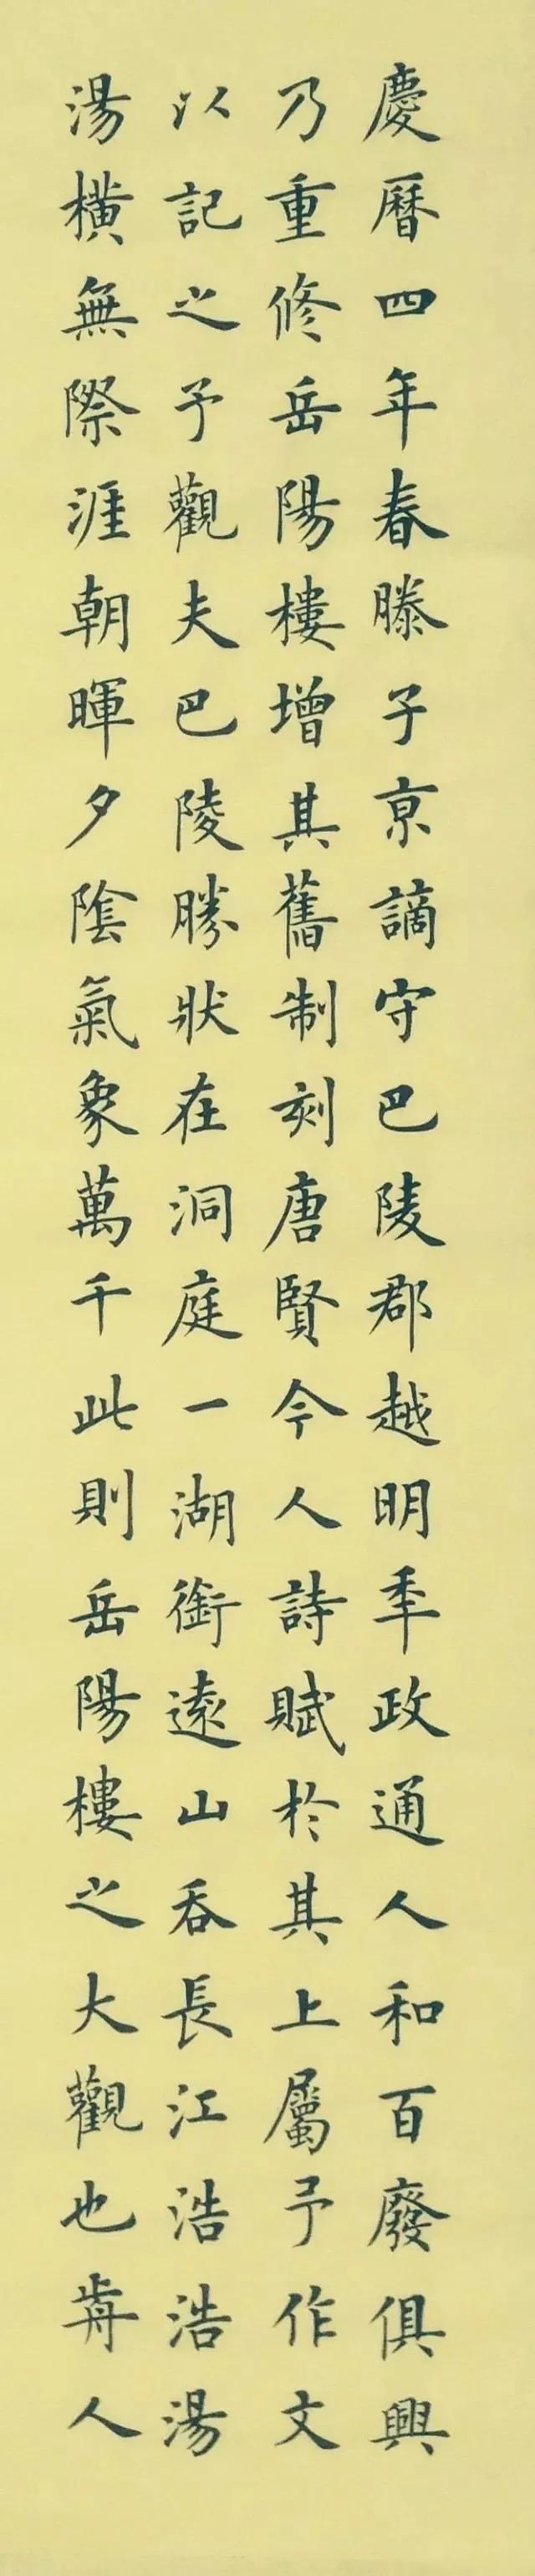 慶曆四年春滕子京謫守巴陵郡越明秊政通人和百廢俱興
乃重修岳陽樓增其舊制刻唐賢今人詩賦於其上屬予作文
以記之予觀夫巴陵勝狀在洞庭一湖銜遠山吞長江浩浩湯
湯橫無際涯朝暉夕陰氣象萬千此則岳陽樓之大觀也歬人